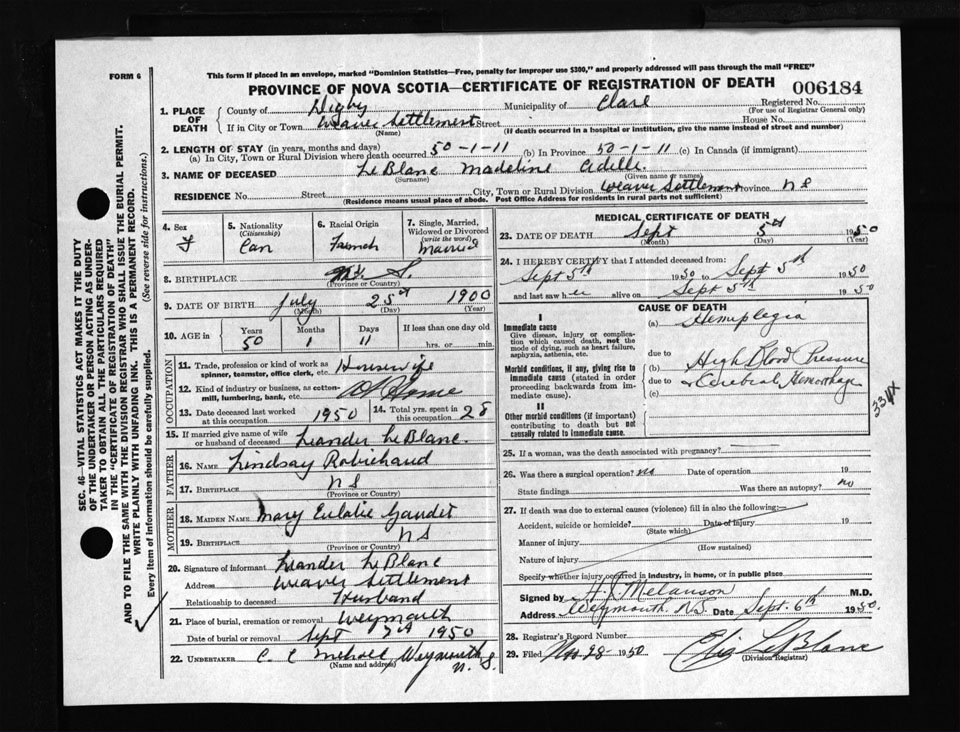 FORM 6
This form if placed in an envelope, marked "Dominion Statistics—Free, penalty for improper use $300," and properly addressed will pass through the mail "FREE"
PROVINCE OF NOVA SCOTIA—CERTIFICATE OF REGISTRATION OF DEATH 006184
SEC. 46—VITAL STATISTICS ACT MAKES IT THE DUTY
OF THE UNDERTAKER OR PERSON ACTING AS UNDER-
TAKER TO OBTAIN ALL THE PARTICULARS REQUIRED
IN THE "CERTIFICATE OF REGISTRATION OF DEATH"
AND TO FILE THE SAME WITH THE DIVISION REGISTRAR WHO SHALL ISSUE THE BURIAL PERMIT.
WRITE PLAINLY WITH UNFADING INK. THIS IS A PERMANENT RECORD.
Every item of information should be carefully supplied. (See reverse side for instructions.)
1. PLACE OF DEATH County of Digby Municipality of Clare Registered No.
(For use of Registrar General only)
If in City or Town Weaver Settlement Street House No.
(Name) (If death occurred in a hospital or institution, give the name instead of street and number)
2. LENGTH OF STAY (in years, months and days)
(a) In City, Town or Rural Division where death occurred 50-1-11 (b) In Province 50-1-11 (c) In Canada (if immigrant)
3. NAME OF DECEASED LeBlanc Madeline Adelle
(Surname) (Given name or names)
RESIDENCE No. Street City, Town or Rural Division Weaver Settlement Province NS
(Residence means usual place of abode. Post Office Address for residents in rural parts not sufficient)
4. Sex F
5. Nationality (Citizenship) Can
6. Racial Origin French
7. Single, Married, Widowed or Divorced (write the word) Married
8. BIRTHPLACE N. S.
(Province or Country)
9. DATE OF BIRTH July 25th 1900
(Month) (Day) (Year)
10. AGE in Years Months Days If less than one day old
50 1 11 hrs. or min.
OCCUPATION
11. Trade, profession or kind of work as spinner, teamster, office clerk, etc. Housewife
12. Kind of industry or business, as cotton-mill, lumbering, bank, etc. At Home
13. Date deceased last worked at this occupation 1950
14. Total yrs. spent in this occupation 28
15. If married give name of wife or husband of deceased Leander LeBlanc.
FATHER
16. NAME Lindsay Robichaud
17. BIRTHPLACE NS
(Province or Country)
MOTHER
18. MAIDEN NAME Mary Eulalie Gaudet
19. BIRTHPLACE NS
(Province or Country)
20. Signature of informant Leander LeBlanc
Address Weaver Settlement
Relationship to deceased Husband
21. Place of burial, cremation or removal Weymouth
Date of burial or removal Sept 7th 1950
22. UNDERTAKER Weymouth
(Name and address) N. S.
MEDICAL CERTIFICATE OF DEATH
23. DATE OF DEATH Sept 5th 1950
(Month) (Day) (Year)
24. I HEREBY CERTIFY that I attended deceased from:
Sept 5th 1950 to Sept 5th 1950
and last saw her alive on Sept 5th 1950
CAUSE OF DEATH
I
Immediate cause
Give disease, injury or complication which caused death, not the mode of dying, such as heart failure, asphyxia, asthenia, etc.
(a) Hemiplegia
due to
Morbid conditions, if any, giving rise to immediate cause (stated in order proceeding backwards from immediate cause).
(b) High Blood Pressure
due to & Cerebral Hemorrhage
(c)
331X
II
Other morbid conditions (if important) contributing to death but not causally related to immediate cause.
25. If a woman, was the death associated with pregnancy?
26. Was there a surgical operation? no Date of operation 19
State findings Was there an autopsy? no
27. If death was due to external causes (violence) fill in also the following:
Accident, suicide or homicide? Date of injury 19
(State which)
Manner of injury
(How sustained)
Nature of injury
Specify whether injury occurred in industry, in home, or in public place
Signed by Melanson M.D.
Address Weymouth. N.S. Date Sept. 6th 1950.
28. Registrar's Record Number
29. Filed Nov 28 1950 LeBlanc
(Division Registrar)